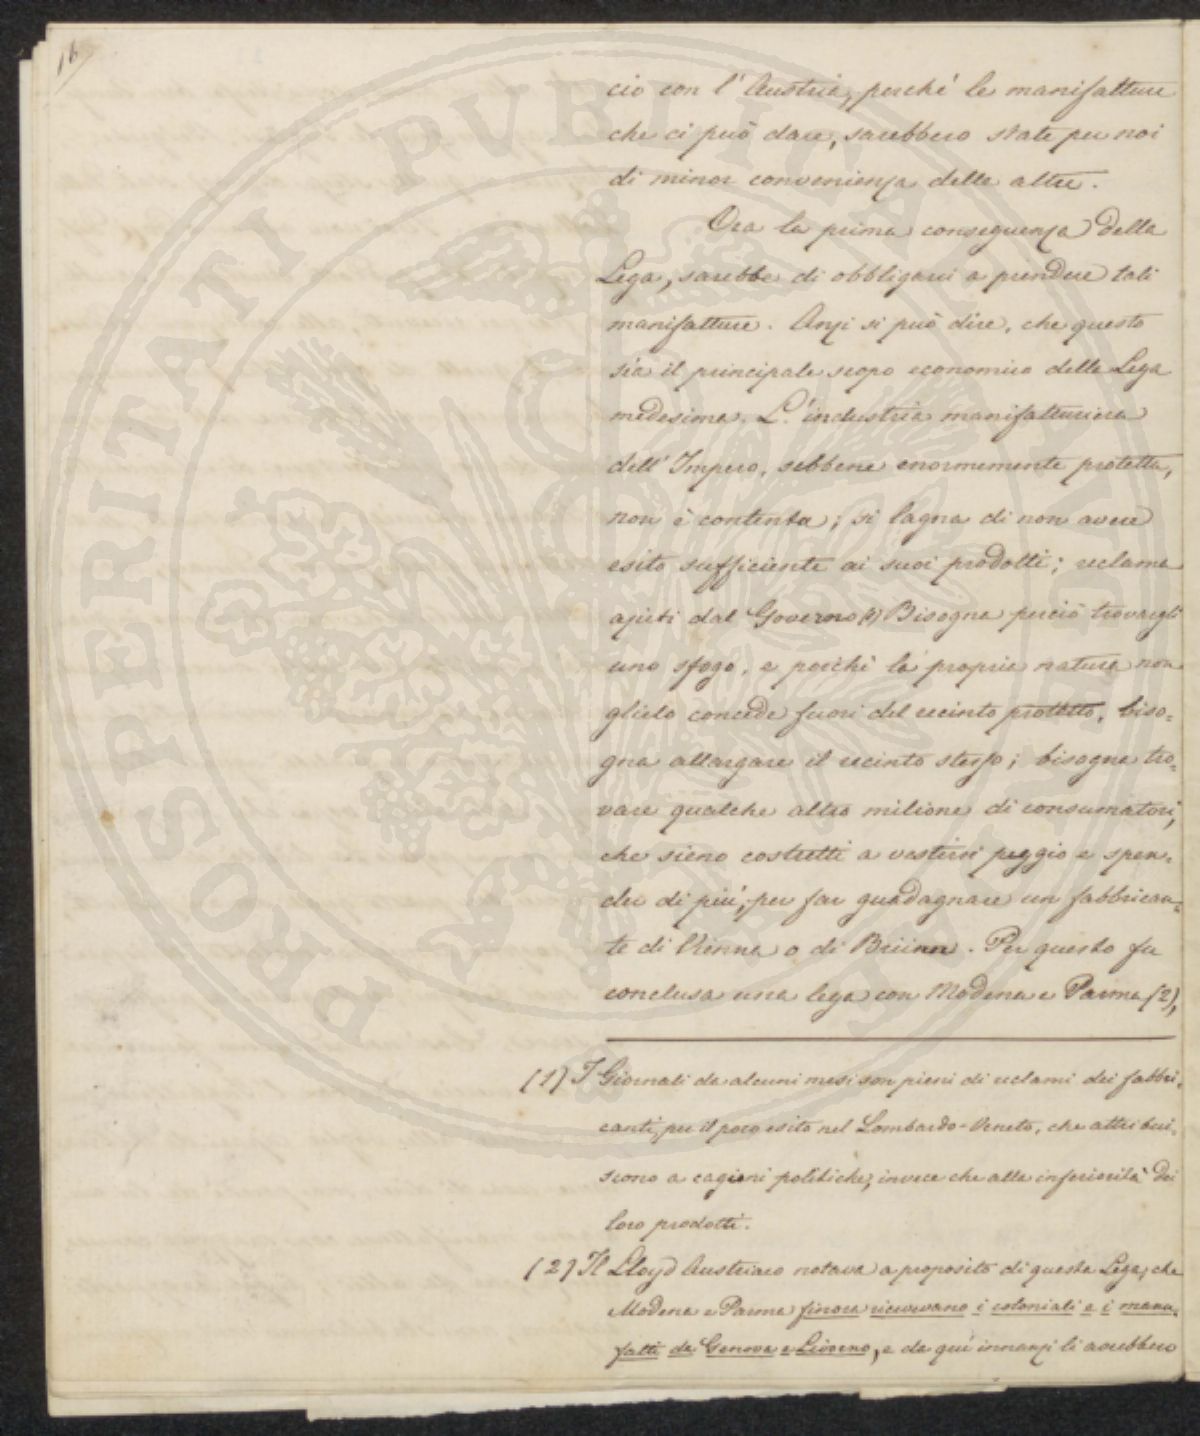 16
cio con l'Austria, perché le manifatture
che ci può dare, sarebbero state per noi
di minor convenienza delle altre.
Ora la prima conseguenza della
Lega, sarebbe di obbligarci a prendere tali
manifatture. Anzi si può dire, che questo
sia il principale scopo economico della Lega
medesima. L'industria manifatturiera
dell'Impero, sebbene enormemente protetta,
non è contenta; si lagna di non avere
esito sufficiente ai suoi prodotti; reclama
ajuti dal Governo (1) Bisogna perciò trovargli
uno sfogo, e poiché la propria natura non
glielo concede fuori del recinto protetto, biso=
gna allargare il recinto stesso; bisogna tro=
vare qualche altro milione di consumatori,
che sieno costretti a vestirsi peggio e spen=
der di più, per far guadagnare un fabbrican=
te di Vienna o di Brünn. Per questo fu
conclusa una lega con Modena e Parma (2),
(1) I Giornali da alcuni mesi son pieni di reclami dei fabbri=
canti, per il poco esito nel Lombardo-Veneto, che attribui=
scono a cagioni politiche, invece che alla inferiorità dei
loro prodotti.
(2) Il Lloyd Austriaco notava a proposito di questa Lega, che
Modena e Parma finora ricevevano i coloniali e i manu=
fatti da Genova e Livorno, e da qui innanzi li avrebbero
PROSPERITATI PVBLICAE